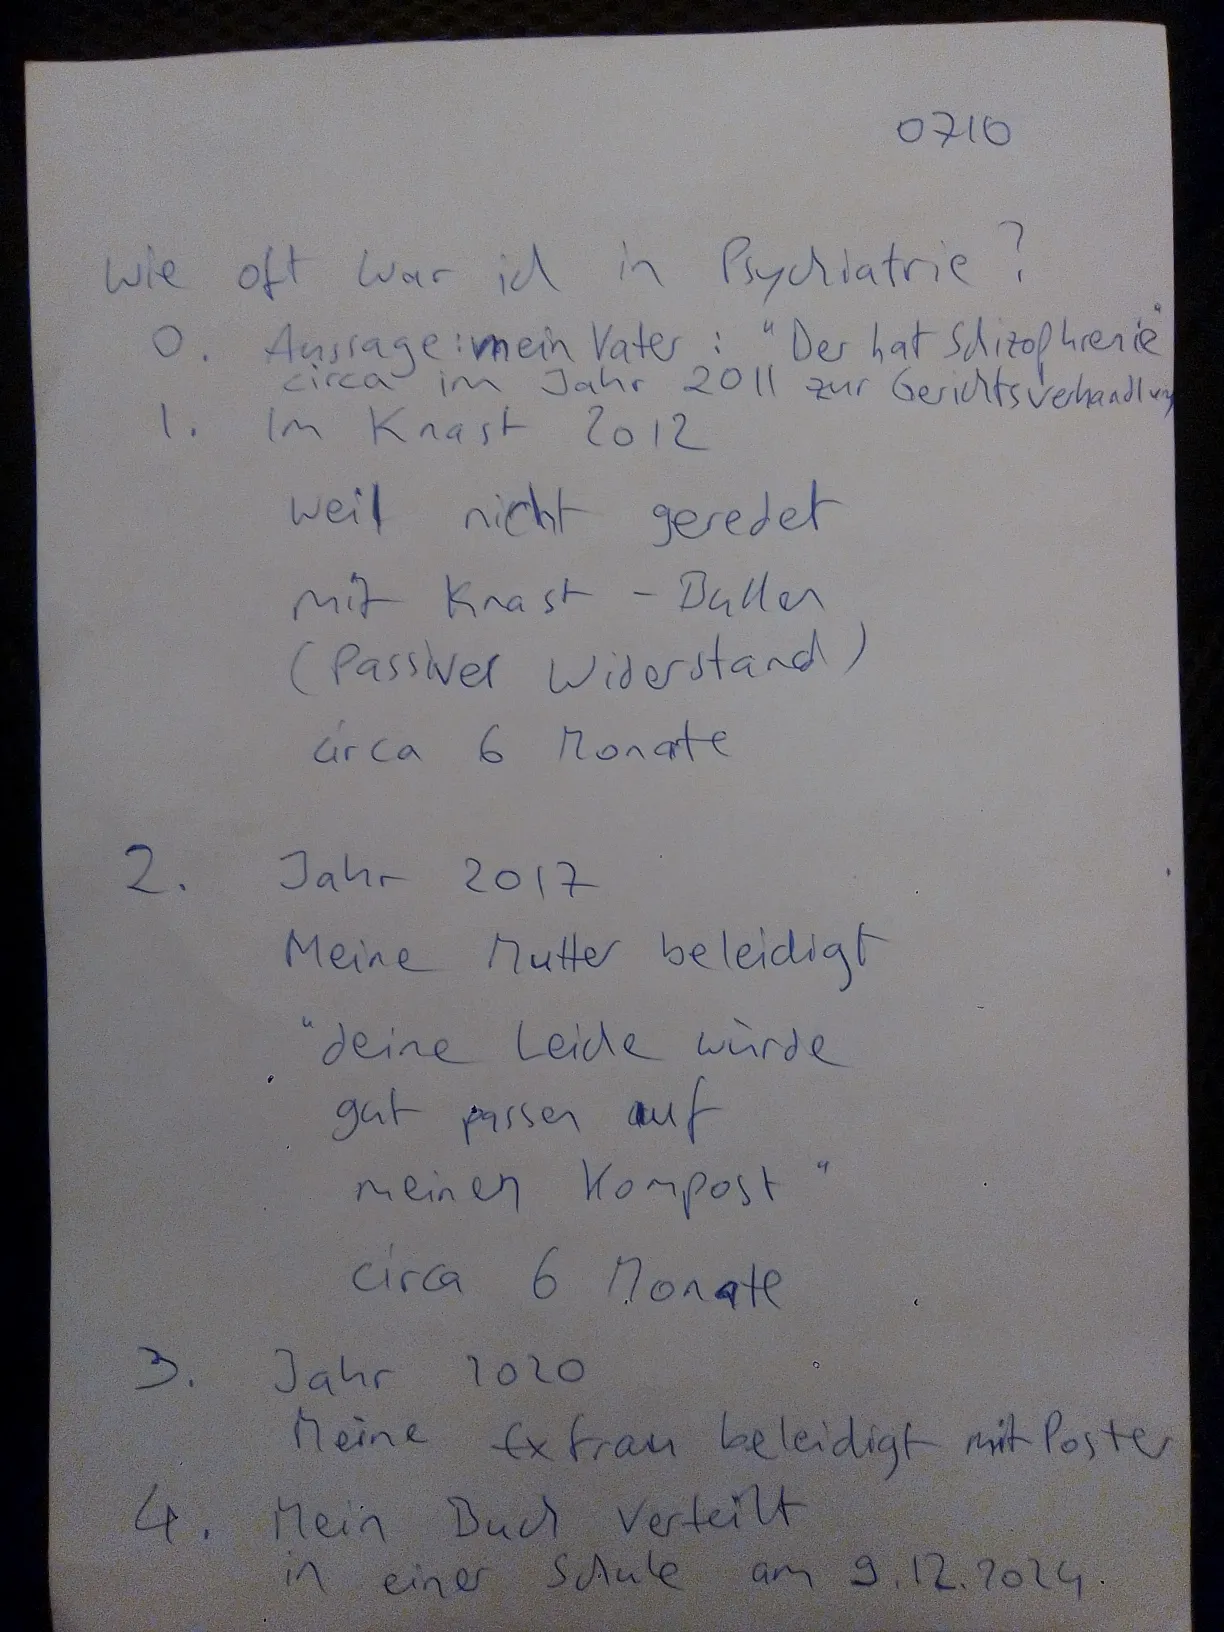 0710
Wie oft war ich in Psychiatrie?
0. Aussage: mein Vater: "Der hat Schizophrenie"
circa im Jahr 2011 zur Gerichtsverhandlung
1. Im Knast 2012
weil nicht geredet
mit Knast - Bullen
(Passiver Widerstand)
circa 6 Monate
2. Jahr 2017
Meine Mutter beleidigt
"deine Leiche würde
gut passen auf
meinen Kompost"
circa 6 Monate
3. Jahr 2020
Meine Exfrau beleidigt mit Poster
4. Mein Buch verteilt
in einer Schule am 9.12.2024.